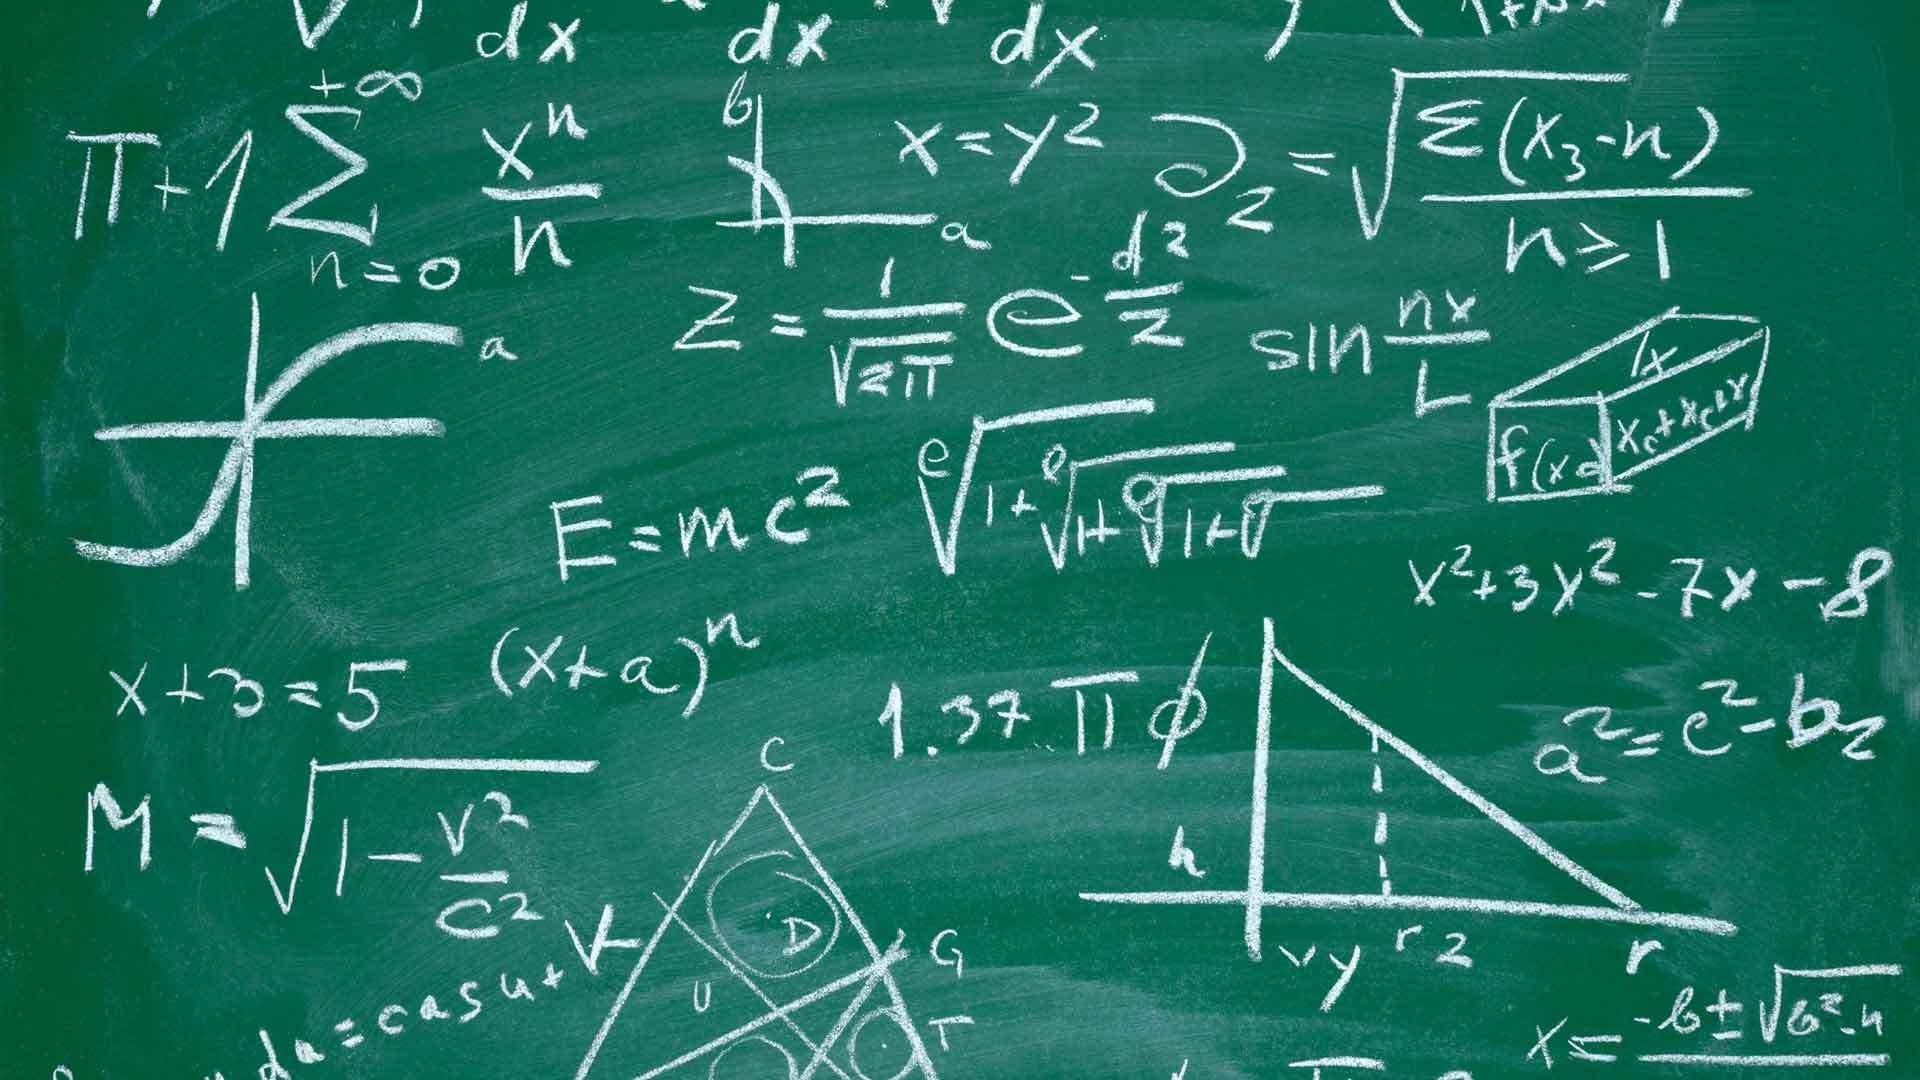 dx dx dx
π+1 ∑ +∞ n=0 xⁿ/n
b a
x=y²
∂₂ = √ Σ(x₃-n) / n≥1
a
z = 1/√2π e^-d²/z
sin nx/L
x
f(x
E=mc²
e√1+ e√1+ √1+ √
x²+3x²-7x-8
x+3=5
(x+a)ⁿ
1.37 π ϕ
a²=c²-b₂
M = √1-v²/c²
C
D
G
K
U
T
h
vy r2 r
da=casu+
x= -b±√b²-4